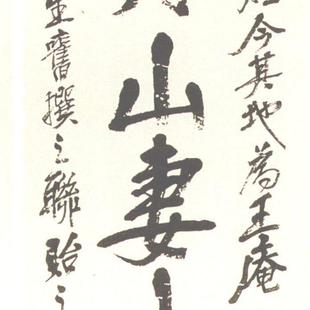 今其地為王庵
山妻
生舊撰之聯貽之